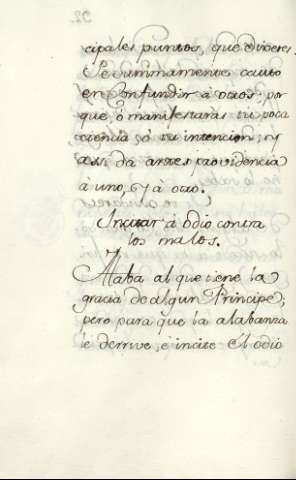 92.
cipales puntos, que dixeres.
Sè summamente cauto
en confundir à otros: por
que, ò manifestaràs tu poca
ciencia, ò tu intencion; ny
assi dà antes providencia
à uno, y à otro.
Incitar à odio contra
los malos.
Alaba al que tiene la
gracia de algun Principe;
pero para que la alabanza
le derrive, è incite el odio